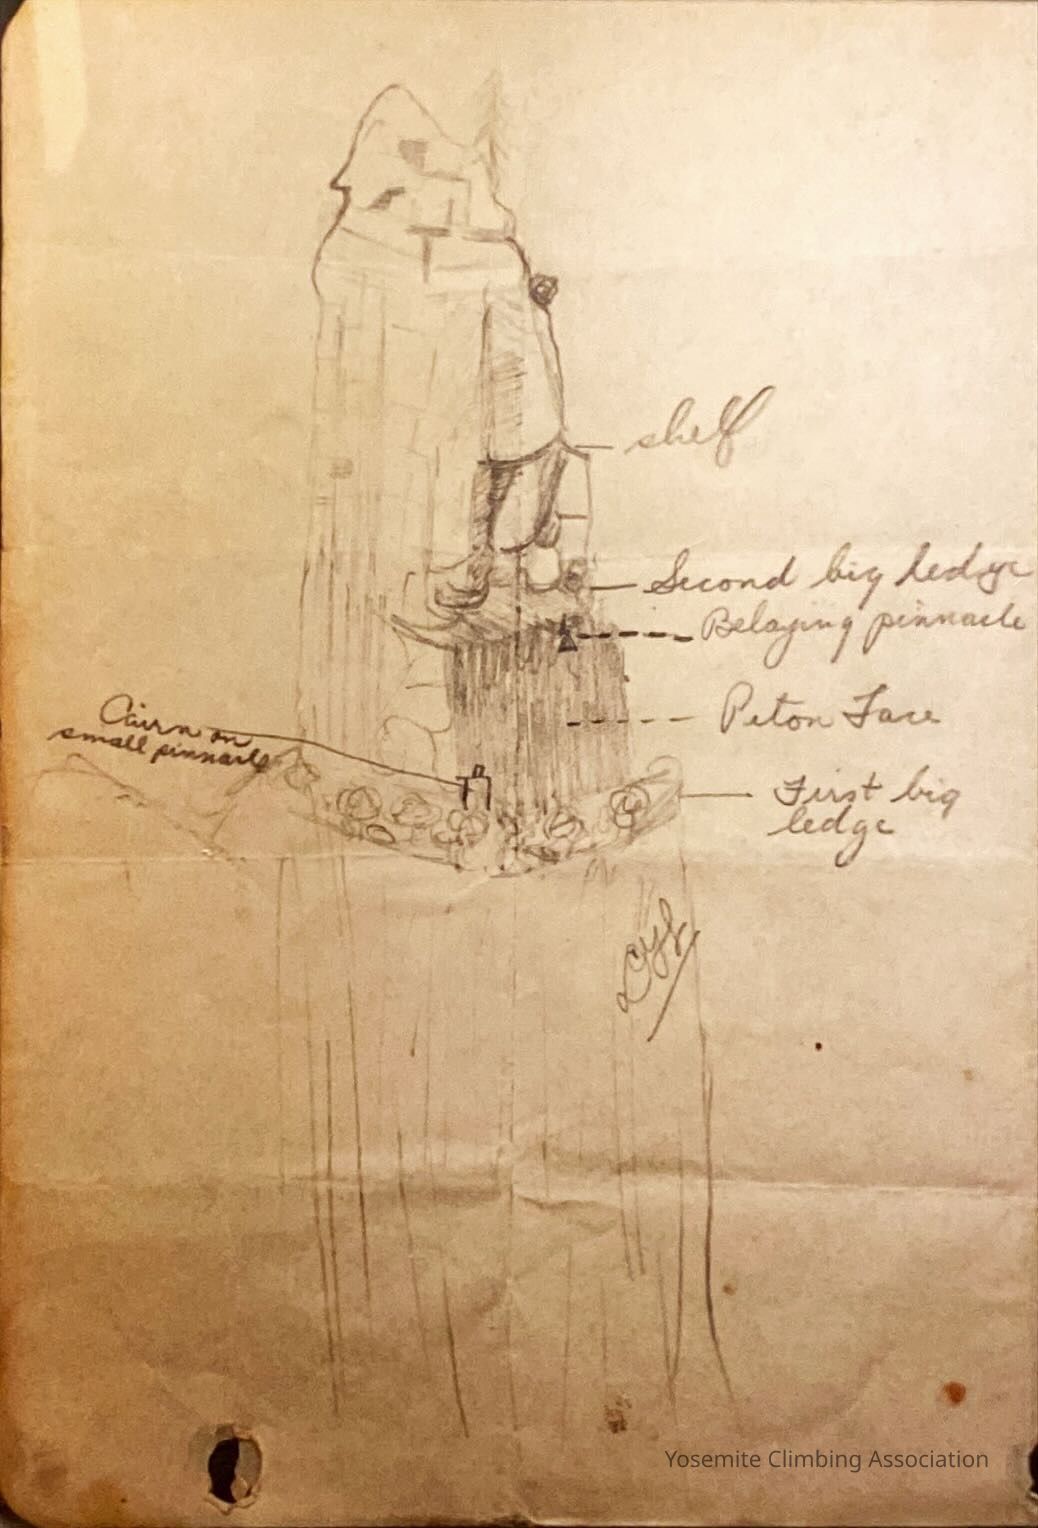 shelf
Second big ledge
Belaying pinnacle
Cairn on
small pinnacle
Piton Face
First big
ledge
Yosemite Climbing Association